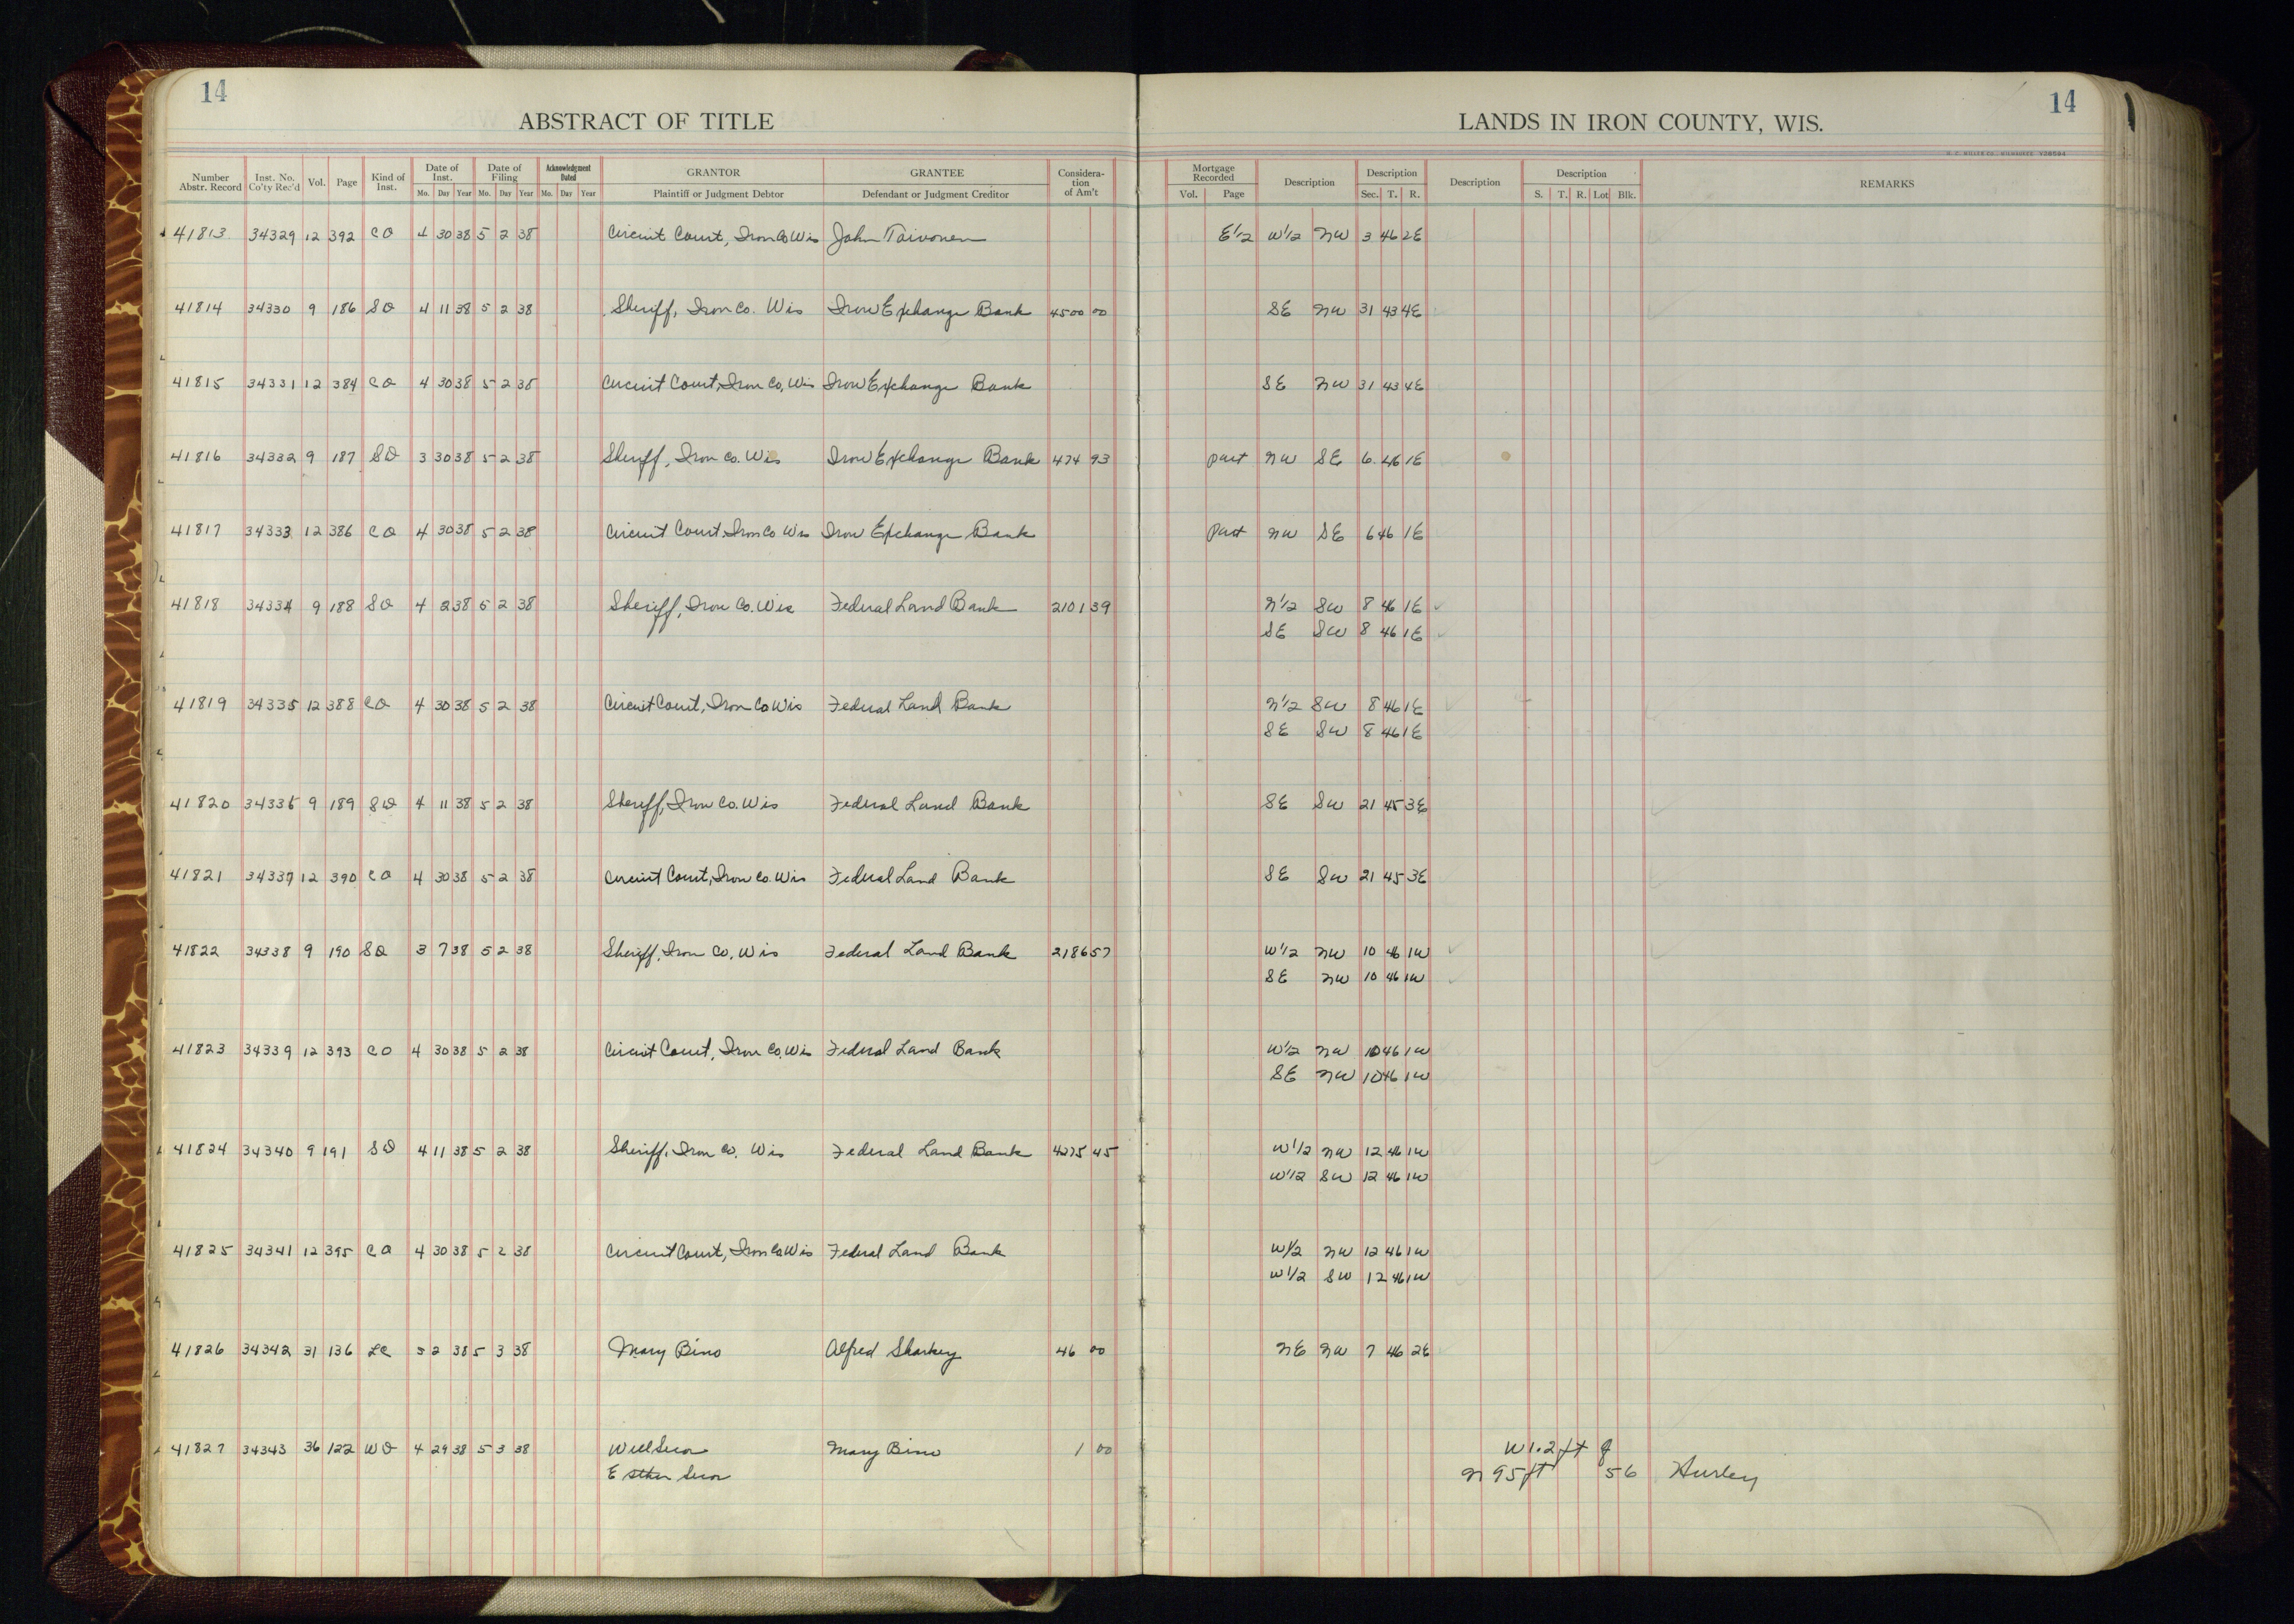 14
ABSTRACT OF TITLE
LANDS IN IRON COUNTY, WIS.
14
Number Abstr. Record Inst. No. Co'ty Rec'd Vol. Page Kind of Inst. Date of Inst. Mo. Day Year Date of Filing Mo. Day Year Acknowledgment Dated Mo. Day Year GRANTOR Plaintiff or Judgment Debtor GRANTEE Defendant or Judgment Creditor Consideration of Am't Mortgage Recorded Vol. Page Description Description Sec. T. R. Description Description S. T. R. Lot Blk. REMARKS
41813 34329 12 392 CO 4 30 38 5 2 38 Circuit Court, Iron Co Wis John Toivonen E1/2 W1/2 NW 3 46 2E
41814 34330 9 186 SD 4 11 38 5 2 38 Sheriff, Iron Co. Wis Iron Exchange Bank 4500 00 SE NW 31 43 4E
41815 34331 12 384 CO 4 30 38 5 2 38 Circuit Court, Iron Co, Wis Iron Exchange Bank SE NW 31 43 4E
41816 34332 9 187 SD 3 30 38 5 2 38 Sheriff, Iron Co. Wis Iron Exchange Bank 474 93 part NW SE 6 46 1E
41817 34333 12 386 CO 4 30 38 5 2 38 Circuit Court, Iron Co Wis Iron Exchange Bank Part NW SE 6 46 1E
41818 34334 9 188 SD 4 2 38 5 2 38 Sheriff, Iron Co. Wis Federal Land Bank 2101 39 N1/2 SW 8 46 1E
SE SW 8 46 1E
41819 34335 12 388 CO 4 30 38 5 2 38 Circuit Court, Iron Co Wis Federal Land Bank N1/2 SW 8 46 1E
SE SW 8 46 1E
41820 34336 9 189 SD 4 11 38 5 2 38 Sheriff, Iron Co. Wis Federal Land Bank SE SW 21 45 3E
41821 34337 12 390 CO 4 30 38 5 2 38 Circuit Court, Iron Co. Wis Federal Land Bank SE SW 21 45 3E
41822 34338 9 190 SD 3 7 38 5 2 38 Sheriff, Iron Co, Wis Federal Land Bank 2186 57 W1/2 NW 10 46 1W
SE NW 10 46 1W
41823 34339 12 393 CO 4 30 38 5 2 38 Circuit Court, Iron Co, Wis Federal Land Bank W1/2 NW 10 46 1W
SE NW 10 46 1W
41824 34340 9 191 SD 4 11 38 5 2 38 Sheriff, Iron Co, Wis Federal Land Bank 4275 45 W1/2 NW 12 46 1W
W1/2 SW 12 46 1W
41825 34341 12 395 CO 4 30 38 5 2 38 Circuit Court, Iron Co Wis Federal Land Bank W1/2 NW 12 46 1W
W1/2 SW 12 46 1W
41826 34342 31 136 LC 5 2 38 5 3 38 Mary Bino Alfred Sharkey 46 00 NE NW 7 46 2E
41827 34343 36 122 WD 4 29 38 5 3 38 Will Secor Mary Bino 1 00 W 1.2 ft of
Esther Secor N 95 ft 5 6 Hurley